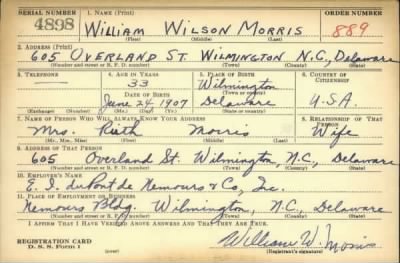 SERIAL NUMBER 1. NAME (Print) ORDER NUMBER
4898 WILLIAM WILSON MORRIS 889
(First) (Middle) (Last)
2. ADDRESS (Print)
605 OVERLAND ST. WILMINGTON N.C., Delaware
(Number and street or R. F. D. number) (Town) (County) (State)
3. TELEPHONE 4. AGE IN YEARS 5. PLACE OF BIRTH 6. COUNTRY OF CITIZENSHIP
33 Wilmington
DATE OF BIRTH (Town or county)
June 24 1907 Delaware U.S.A.
(Exchange) (Number) (Mo.) (Day) (Yr.) (State or country)
7. NAME OF PERSON WHO WILL ALWAYS KNOW YOUR ADDRESS 8. RELATIONSHIP OF THAT PERSON
Mrs. Ruth Morris Wife
(Mr., Mrs., Miss) (First) (Middle) (Last)
9. ADDRESS OF THAT PERSON
605 Overland St. Wilmington, N.C., Delaware
(Number and street or R. F. D. number) (Town) (County) (State)
10. EMPLOYER'S NAME
E. I. duPont de Nemours & Co, Inc.
11. PLACE OF EMPLOYMENT OR BUSINESS
Nemours Bldg. Wilmington, N.C., Delaware
(Number and street or R. F. D. number) (Town) (County) (State)
I AFFIRM THAT I HAVE VERIFIED ABOVE ANSWERS AND THAT THEY ARE TRUE.
REGISTRATION CARD William W. Morris
D. S. S. Form 1 (Registrant's signature)